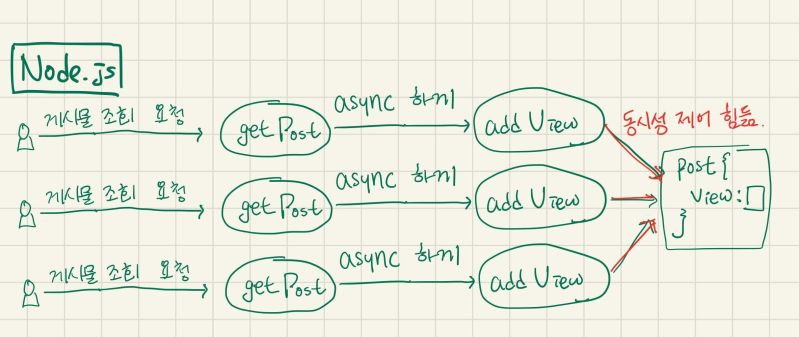 Node.js
게시물 조회 요청
getPost
async 하게
add View
동시성 제어 힘듦.
post {
view:
}
게시물 조회 요청
getPost
async 하게
add View
게시물 조회 요청
getPost
async 하게
add View